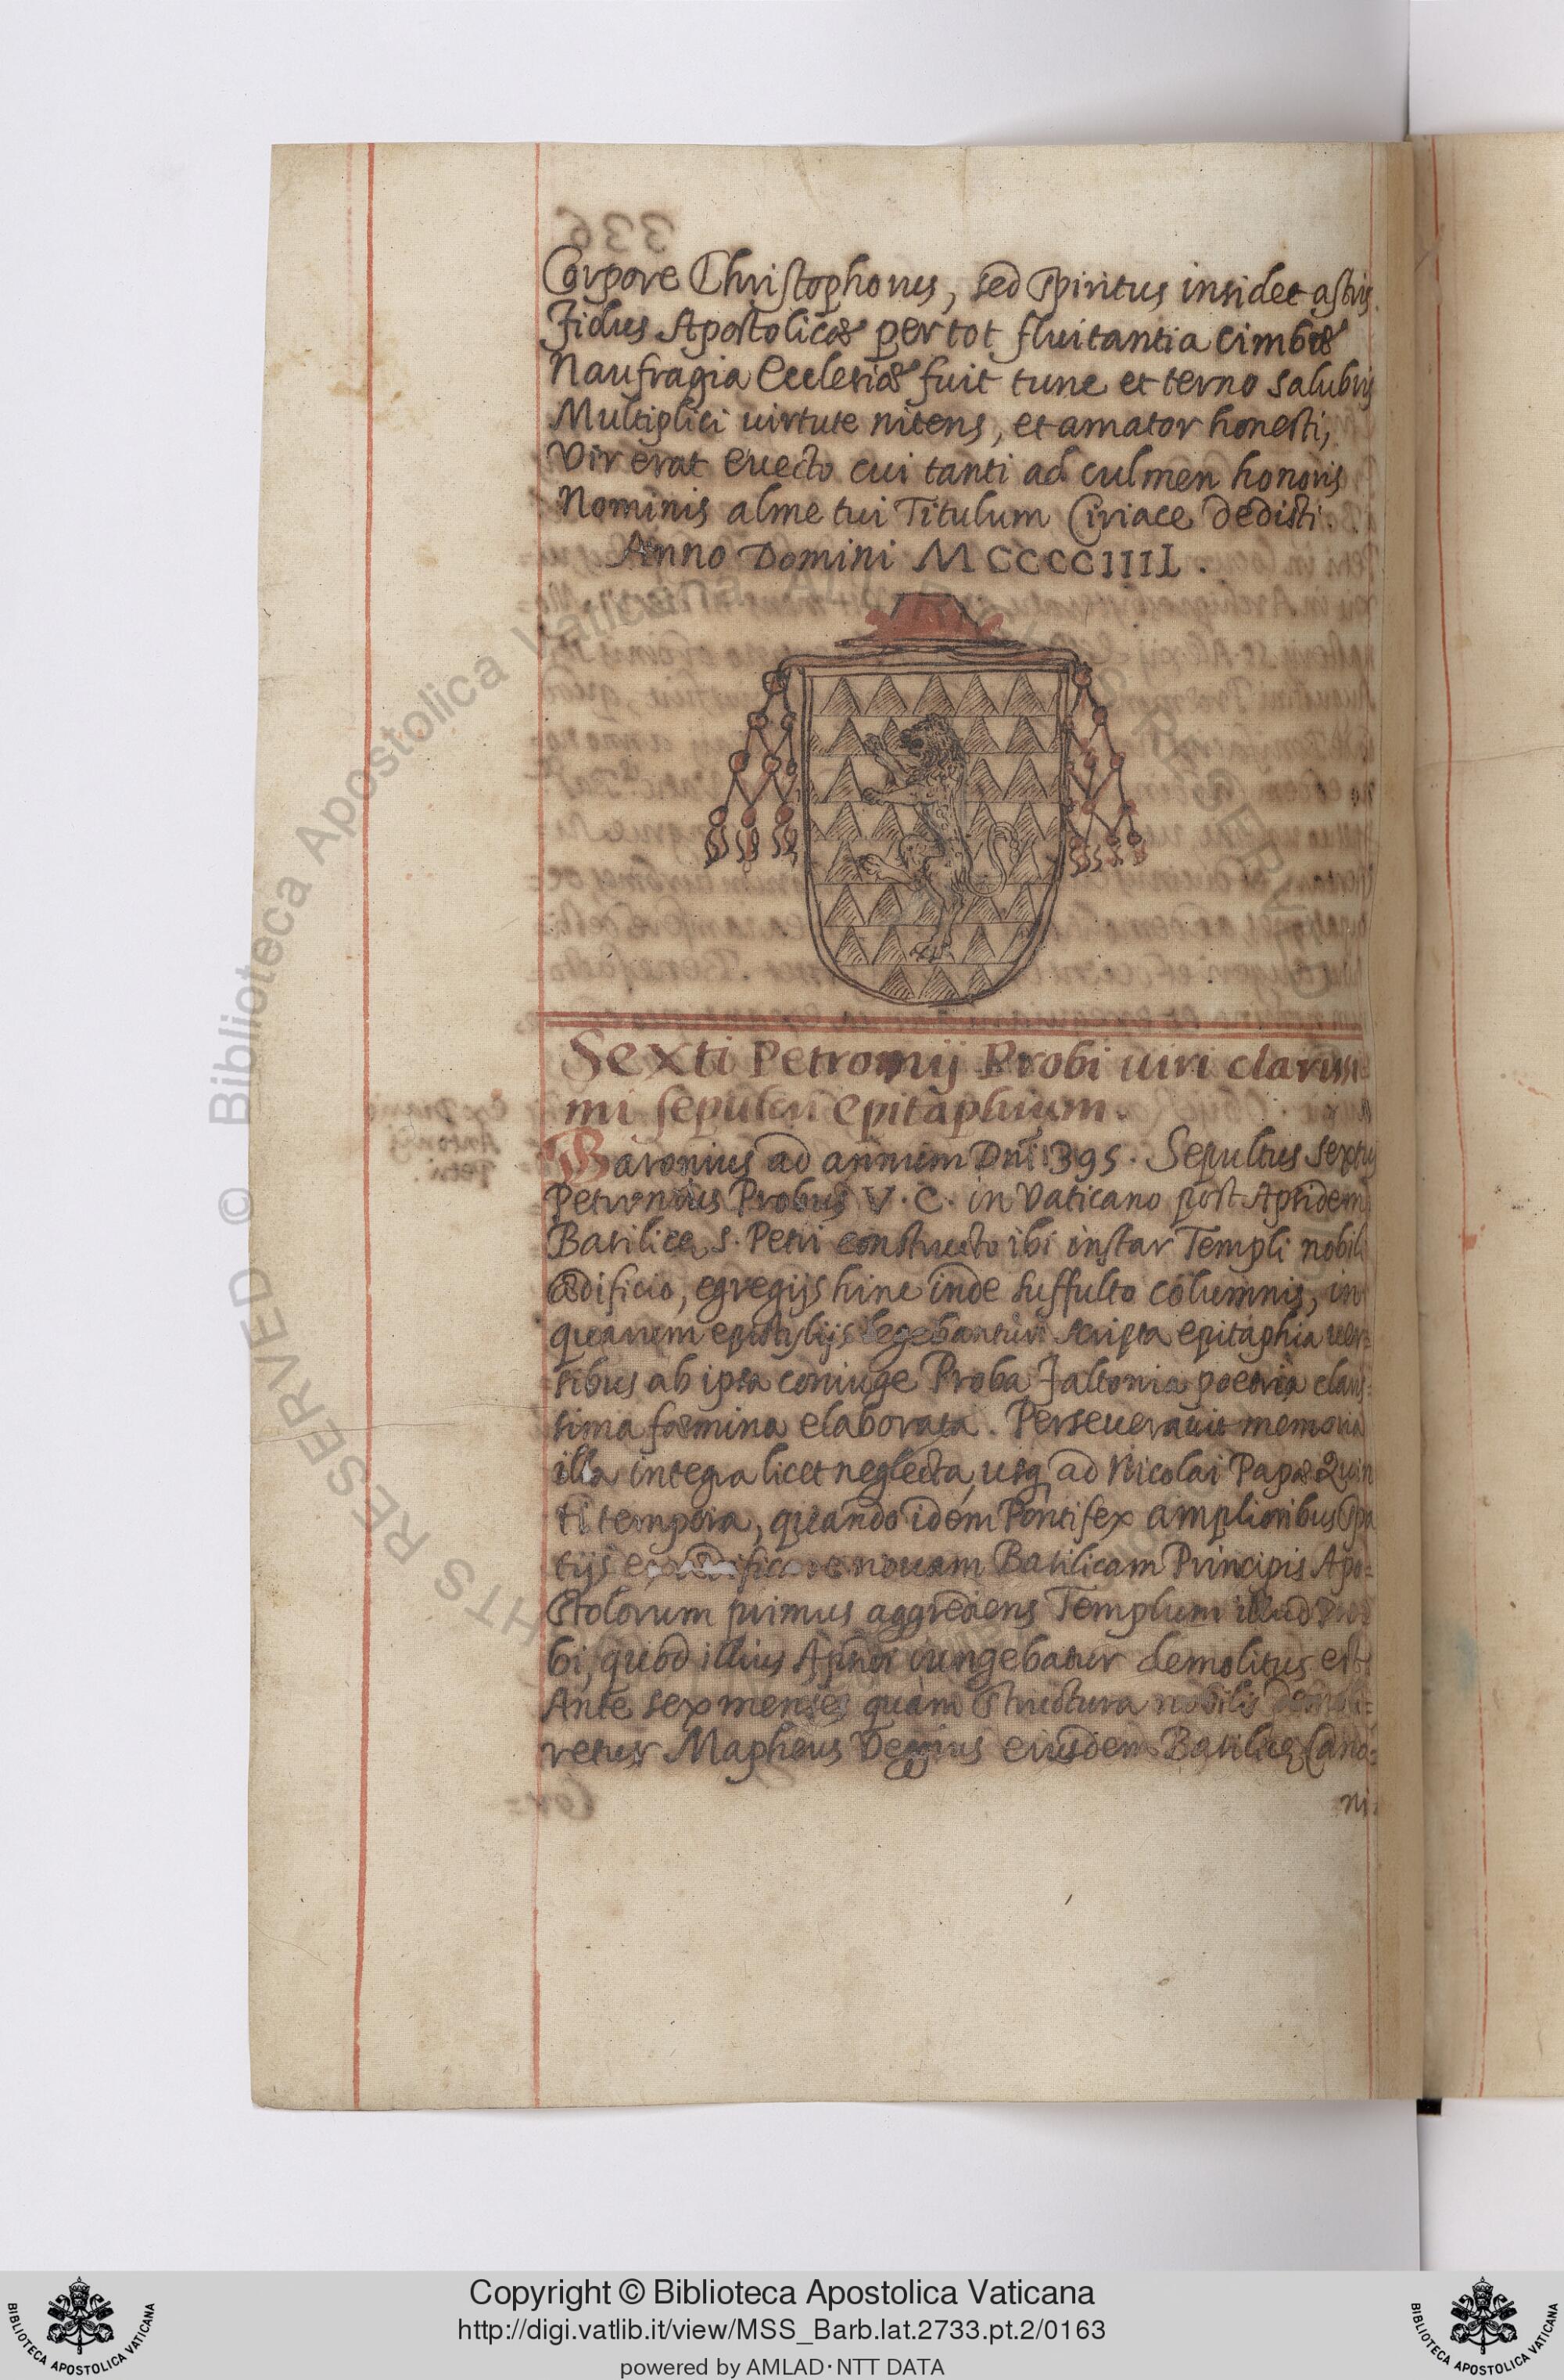 Corpore Christophorus, sed spiritus insidet astris.
Fidus Apostolicæ per tot fluitantia cimbæ
Naufragia Ecclesiæ fuit tunc et terno salubris
Multiplici uirtute nitens, et amator honesti,
Vir erat euecto cui tanti ad culmen honoris
Nominis alme tui Titulum Ciriace dedisti.
Anno Domini MCCCCIIIL.
Sexti Petronij Probi uiri clarissi=
mi sepulcri epitaphium.
Baronius ad annum Dni 395. Sepultus Sextus
Petronius Probus V. C. in Vaticano post Apsidem
Basilicę S. Petri constructo ibi instar Templi nobili
ædificio, egregijs hinc inde suffulto columnis, in
quarum epistylijs legebantur scripta epitaphia uer=
sibus ab ipsa coniuge Proba Faltonia poetria claris=
sima fæmina elaborata. Perseuerauit memoria
illa integra licet neglecta, usq ad Nicolai Papæ Quin
ti tempora, quando idem Pontifex amplioribus spa
tijs novam Basilicam Principis Apo=
stolorum primus aggrediens Templum illud
bi, quod illius Apsidi iungebatur demolitus est
Ante sex menses quàm structura nobilis
retur Mapheus Veggius eiusdem Basilicę Cano=
ni
Copyright © Biblioteca Apostolica Vaticana
http://digi.vatlib.it/view/MSS_Barb.lat.2733.pt.2/0163
powered by AMLAD·NTT DATA
BIBLIOTECA APOSTOLICA VATICANA
BIBLIOTECA APOSTOLICA VATICANA